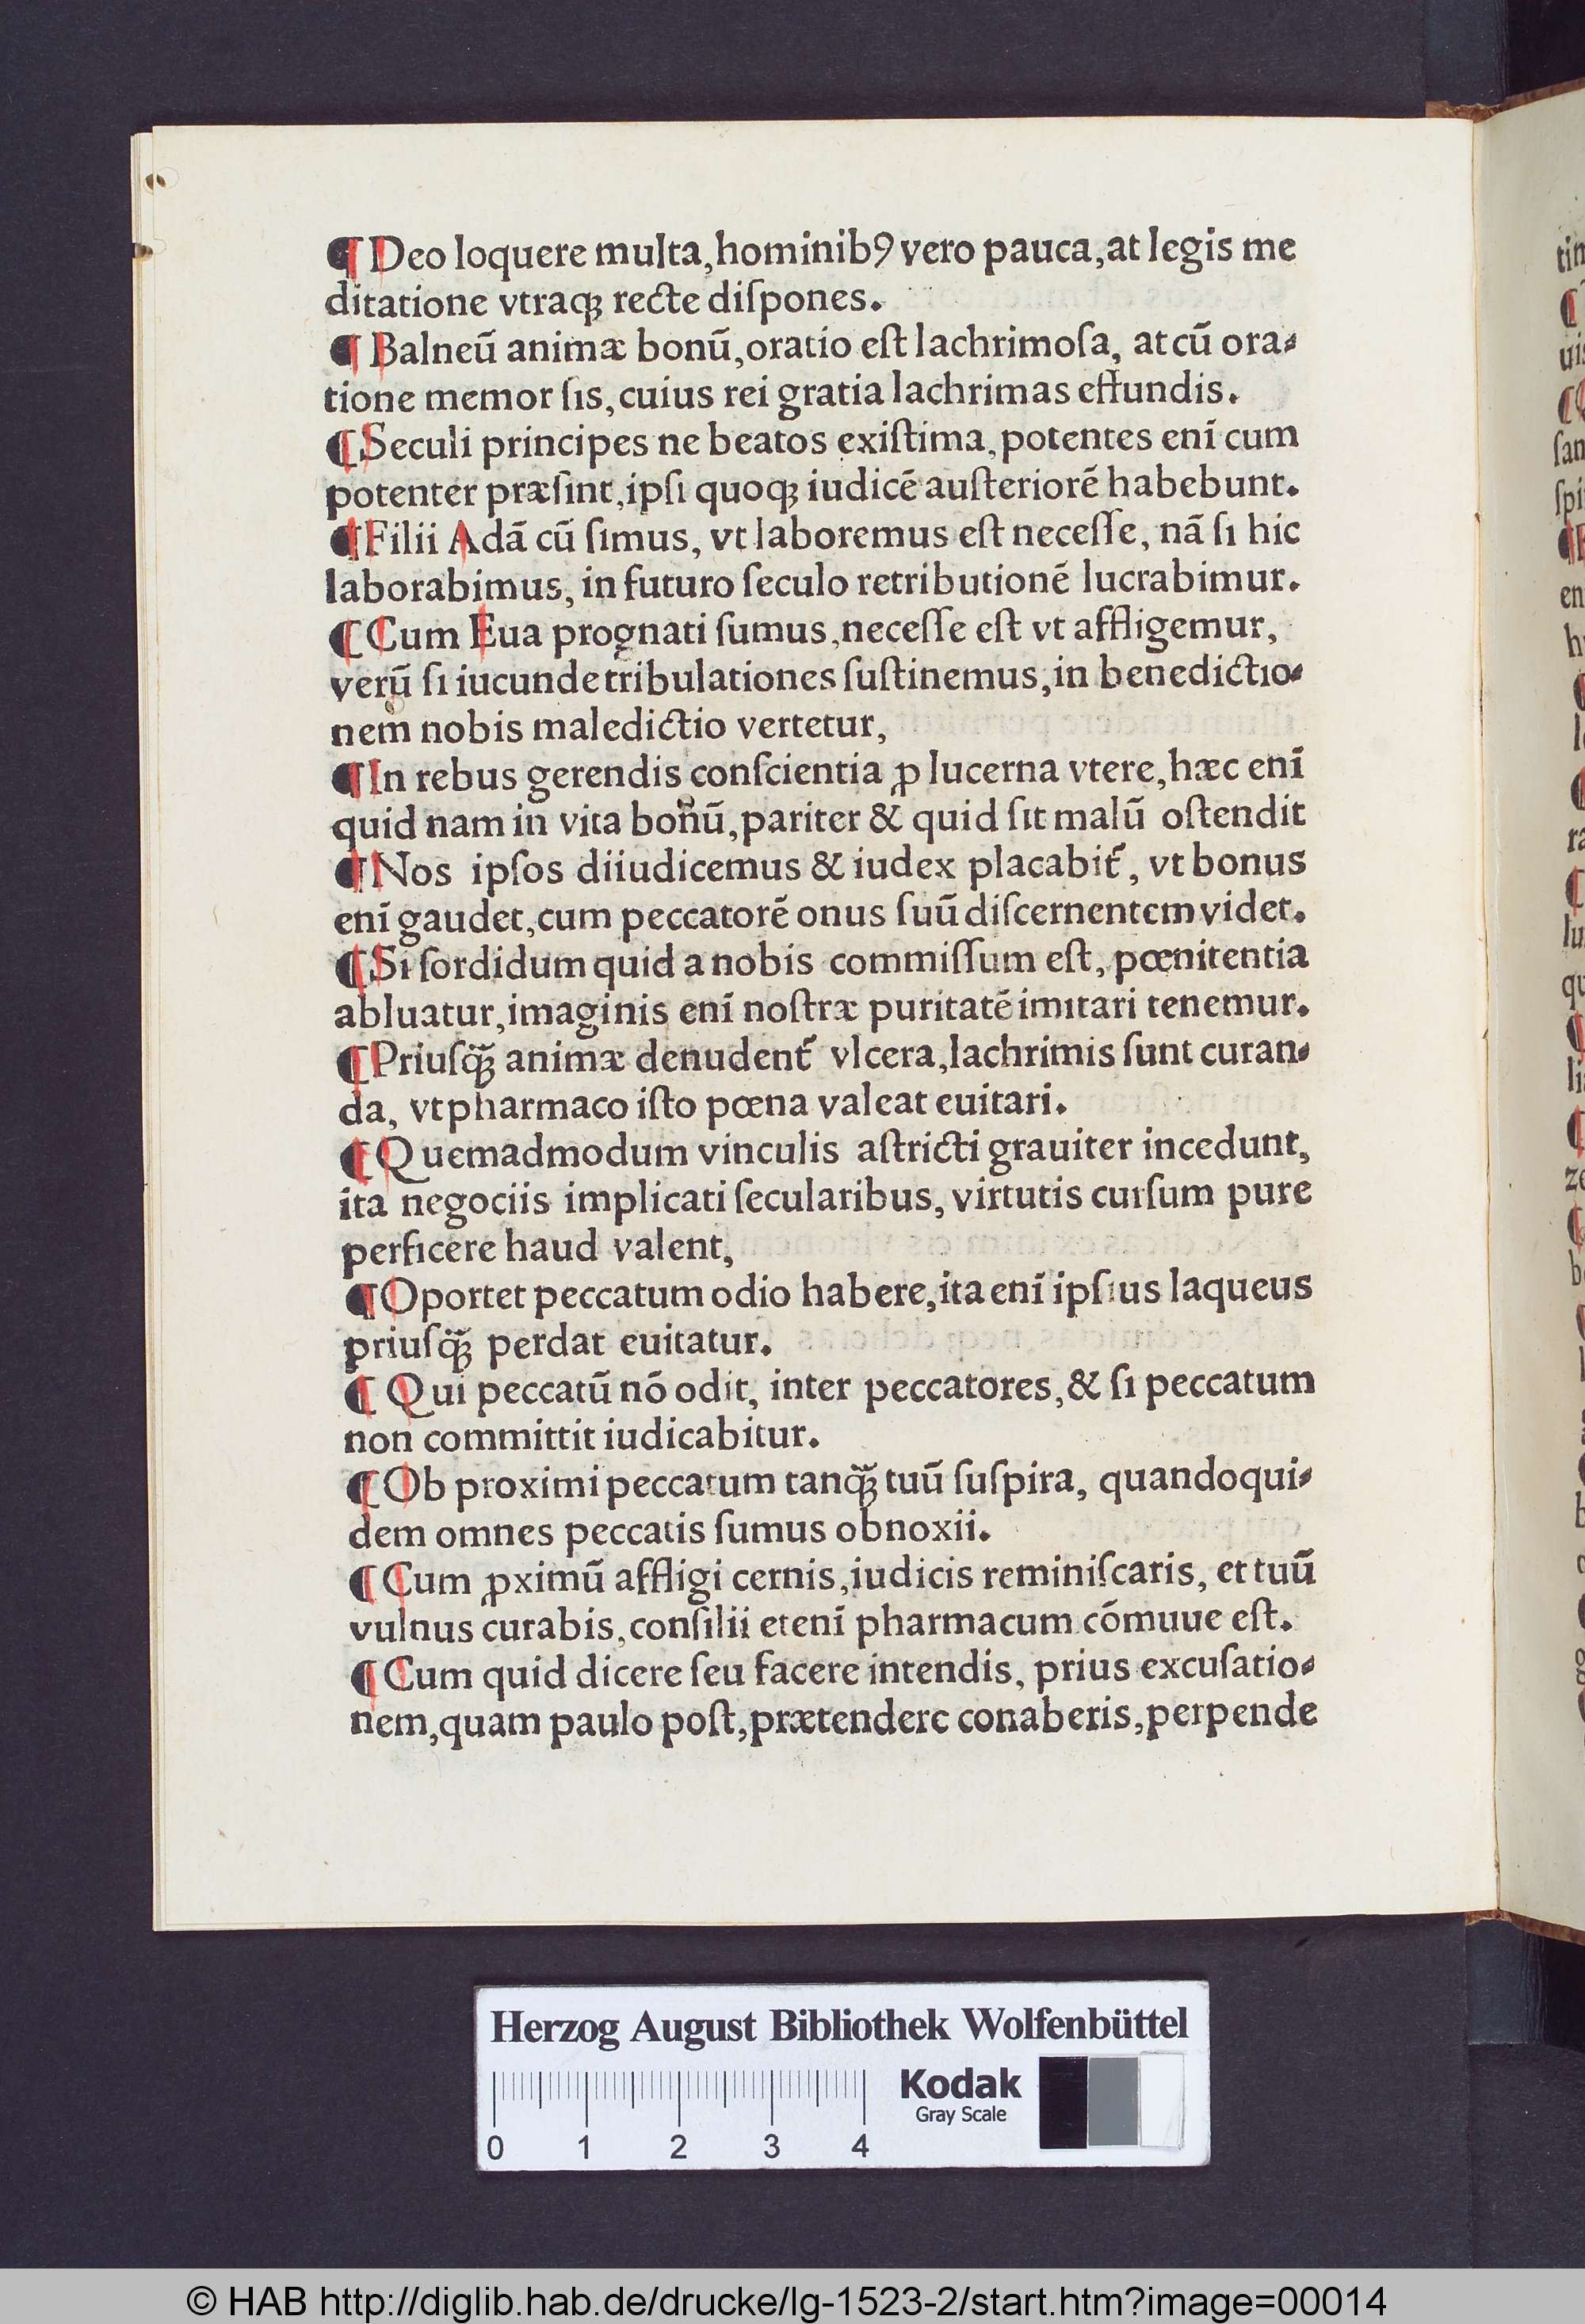 ¶ Deo loquere multa, hominibꝰ vero pauca, at legis me
ditatione vtraqꝫ recte diſpones.
¶ Balneū animæ bonū, oratio eſt lachrimoſa, at cū ora⸗
tione memor ſis, cuius rei gratia lachrimas effundis.
¶ Seculi principes ne beatos exiſtima, potentes enī cum
potenter præſint, ipſi quoqꝫ iudicē auſteriorē habebunt.
¶ Filii Adā cū ſimus, vt laboremus eſt neceſſe, nā ſi hic
laborabimus, in futuro ſeculo retributionē lucrabimur.
¶ Cum Eua prognati ſumus, neceſſe eſt vt affligemur,
verū ſi iucunde tribulationes ſuſtinemus, in benedictio⸗
nem nobis maledictio vertetur,
¶ In rebus gerendis conſcientia ꝓ lucerna vtere, hæc enī
quid nam in vita bonū, pariter & quid ſit malū oſtendit
¶ Nos ipſos diiudicemus & iudex placabit᷑, vt bonus
enī gaudet, cum peccatorē onus ſuū diſcernentem videt.
¶ Si ſordidum quid a nobis commiſſum eſt, pœnitentia
abluatur, imaginis enī noſtræ puritatē imitari tenemur.
¶ Priuſqꝫ̈ animæ denudent᷑ vlcera, lachrimis ſunt curan⸗
da, vt pharmaco iſto pœna valeat euitari.
¶ Quemadmodum vinculis aſtricti grauiter incedunt,
ita negociis implicati ſecularibus, virtutis curſum pure
perficere haud valent,
¶ Oportet peccatum odio habere, ita enī ipſius laqueus
priuſqꝫ̈ perdat euitatur.
¶ Qui peccatū nō odit, inter peccatores, & ſi peccatum
non committit iudicabitur.
¶ Ob proximi peccatum tanqꝫ̈ tuū ſuſpira, quandoqui⸗
dem omnes peccatis ſumus obnoxii.
¶ Cum ꝓximū affligi cernis, iudicis reminiſcaris, et tuū
vulnus curabis, conſilii etenī pharmacum cōmuue eſt.
¶ Cum quid dicere ſeu facere intendis, prius excuſatio⸗
nem, quam paulo poſt, prætendere conaberis, perpende
Herzog August Bibliothek Wolfenbüttel
Kodak
Gray Scale
0 1 2 3 4
© HAB http://diglib.hab.de/drucke/lg-1523-2/start.htm?image=00014